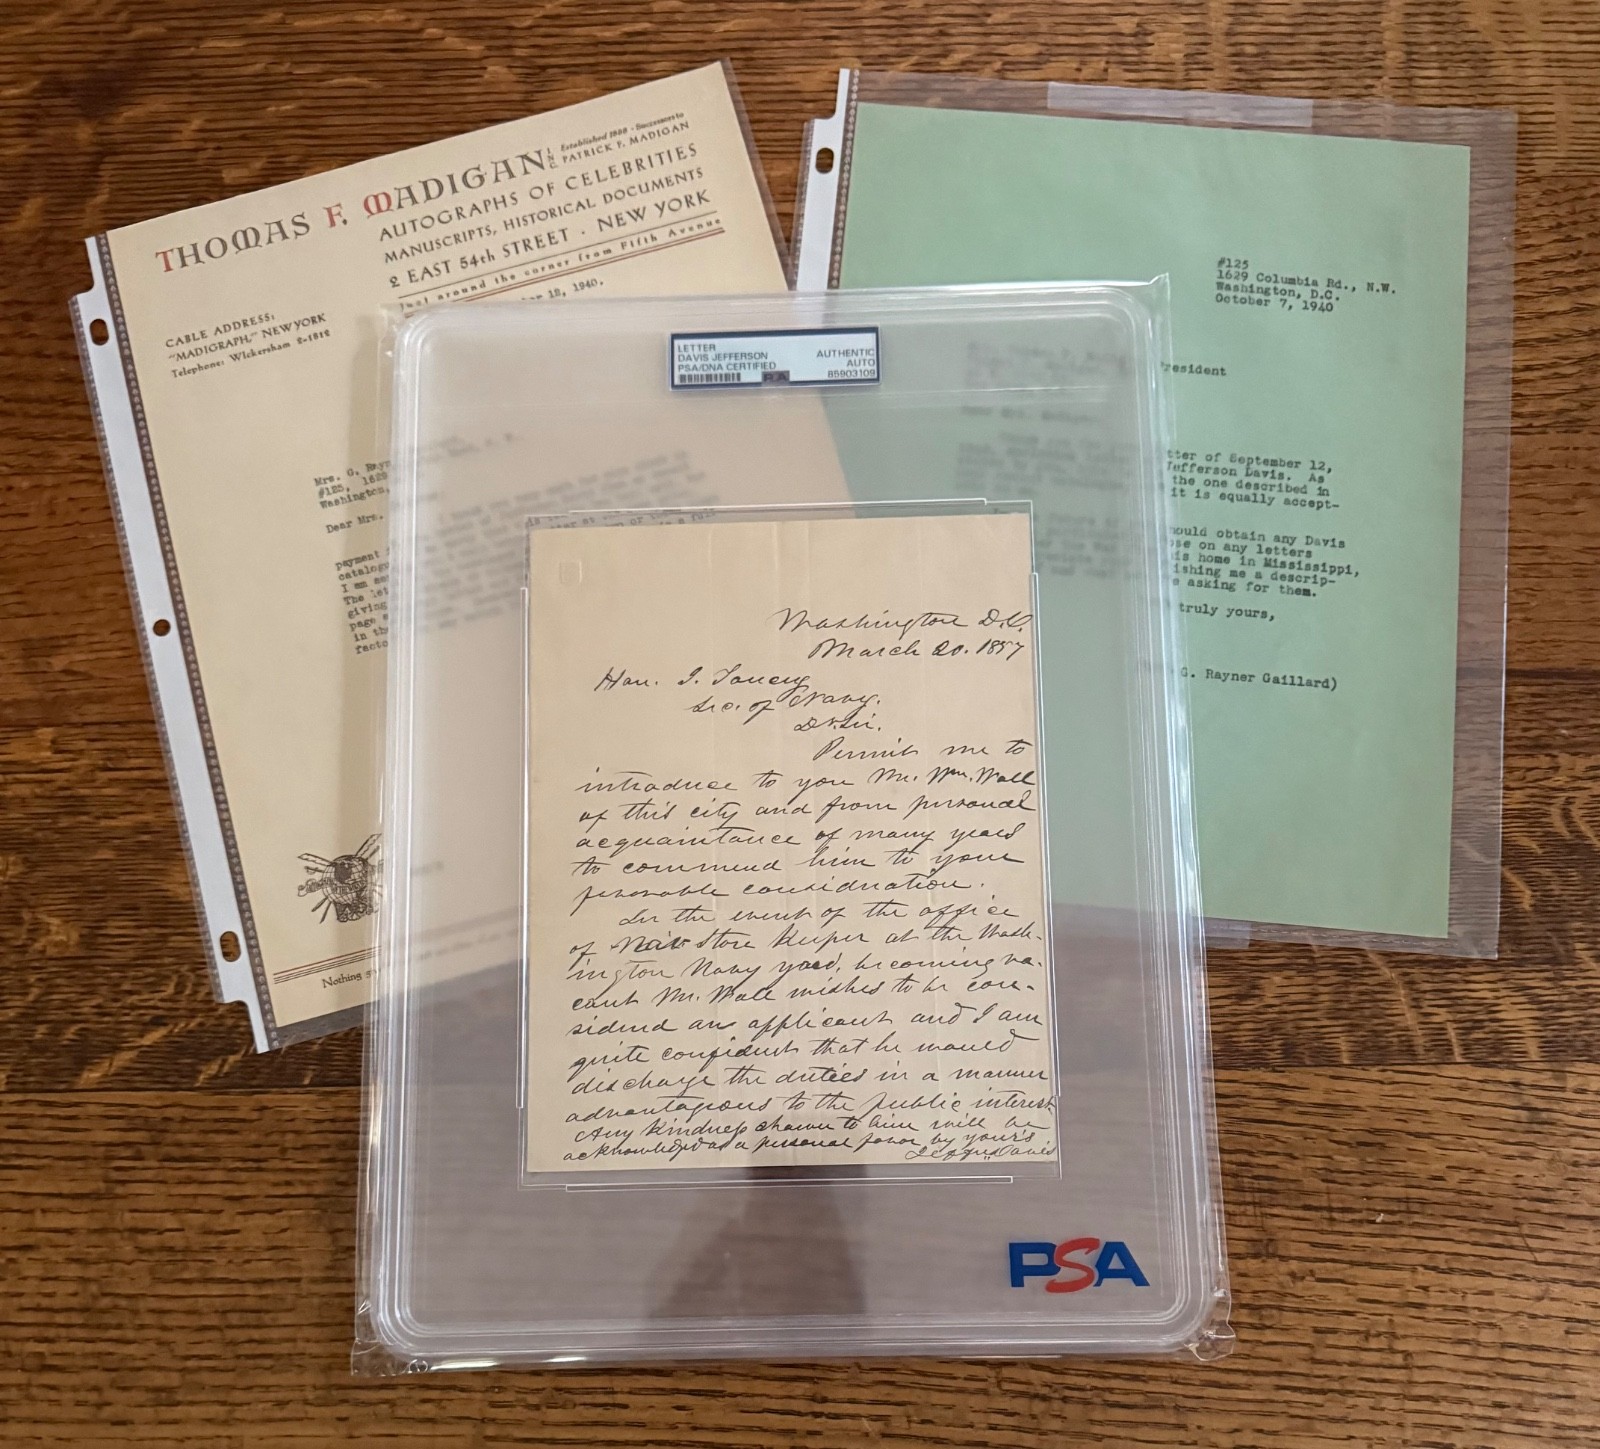 THOMAS F. MADIGAN INC.
Established 1888 - Successors to
PATRICK F. MADIGAN
AUTOGRAPHS OF CELEBRITIES
MANUSCRIPTS, HISTORICAL DOCUMENTS
2 EAST 54th STREET · NEW YORK
Just around the corner from Fifth Avenue
12, 1940.
CABLE ADDRESS:
"MADIGRAPH," NEW YORK
Telephone: WIckersham 2-1812
Mrs. G. Rayn
#125, 1629
Washington,
Dear Mrs.
payment
catalog
I am
The let
giving
page
in the
facto
Nothing
#125
1629 Columbia Rd., N.W.
Washington, D.C.
October 7, 1940
President
tter of September 12,
Jefferson Davis. As
the one described in
it is equally accept-
hould obtain any Davis
ose on any letters
is home in Mississippi,
ishing me a descrip-
e asking for them.
truly yours,
G. Rayner Gaillard)
LETTER
DAVIS JEFFERSON
PSA/DNA CERTIFIED
AUTHENTIC
AUTO
85903109
PSA
Washington D.C.
March 20. 1857
Hon. I. Toucey
Sec. of Navy.
Dr. Sir.
Permit me to
introduce to you Mr. Wm. Wall
of this city and from personal
acquaintance of many years
to commend him to your
favorable consideration.
In the event of the office
of Nav Store Keeper at the Wash-
ington Navy yard, becoming va-
cant Mr. Wall wishes to be con-
sidered an applicant and I am
quite confident that he would
discharge the duties in a manner
advantagious to the public interest.
Any kindness shown to him will be
acknowledged as a personal favor by yours
Jeffn. Davis
PSA